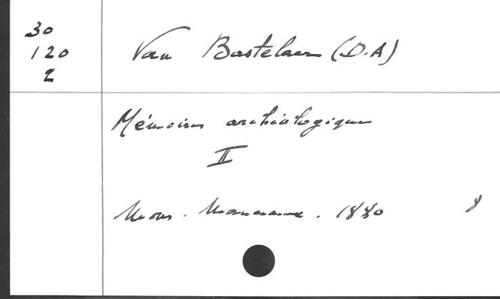 30
120
2
Van Bastelaer (D.A)
Mémoires archéologiques
II
Mons. Manceaux. 1880 8